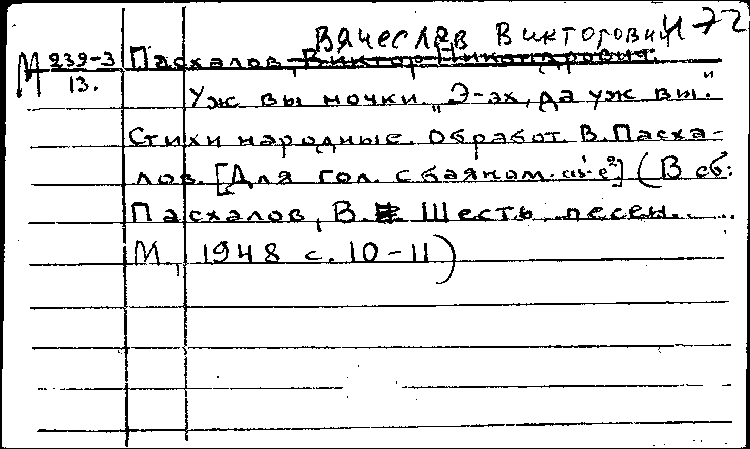 Вячеслав Викторович
И 72
М 239-3
13.
Пасхалов, Виктор Никандрович.
Уж вы ночки „Э-эх, да уж вы."
Стихи народные. Обработ. В. Пасха-
лов. [Для гол. с баяном.] (В сб.:
Пасхалов, В. Шесть песен.
М., 1948 с. 10-11)